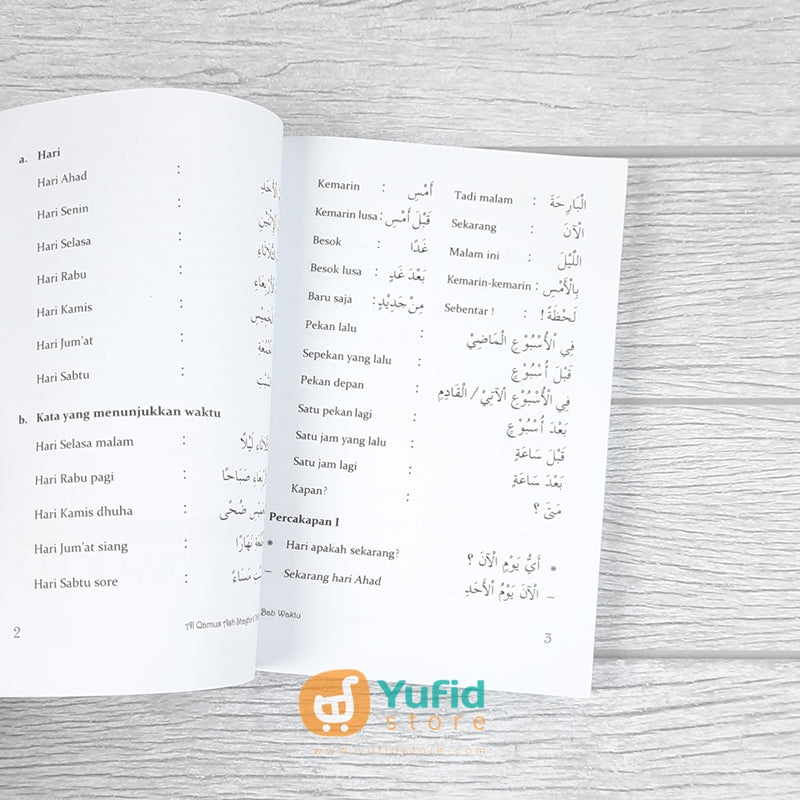 a. Hari
Hari Ahad :
Hari Senin :
Hari Selasa :
Hari Rabu :
Hari Kamis :
Hari Jum'at :
Hari Sabtu :
b. Kata yang menunjukkan waktu
Hari Selasa malam : لَيْلًا
Hari Rabu pagi : صَبَاحًا
Hari Kamis dhuha : ضُحًى
Hari Jum'at siang : نَهَارًا
Hari Sabtu sore : مَسَاءً
2
Al Qamus Ash Shaghir
Kemarin : أَمْسِ
Kemarin lusa : قَبْلَ أَمْسِ
Besok : غَدًا
Besok lusa : بَعْدَ غَدٍ
Baru saja : مِنْ جَدِيْدٍ
Tadi malam : الْبَارِحَةَ
Sekarang : الْآنَ
Malam ini : اللَّيْلَ
Kemarin-kemarin : بِالْأَمْسِ
Sebentar ! : لَحْظَةً !
Pekan lalu : فِي الْأُسْبُوْعِ الْمَاضِيْ
Sepekan yang lalu : قَبْلَ أُسْبُوْعٍ
Pekan depan : فِي الْأُسْبُوْعِ الْآتِيْ / الْقَادِمِ
Satu pekan lagi : بَعْدَ أُسْبُوْعٍ
Satu jam yang lalu : قَبْلَ سَاعَةٍ
Satu jam lagi : بَعْدَ سَاعَةٍ
Kapan? : مَتَى ؟
Percakapan I
* Hari apakah sekarang? * أَيُّ يَوْمٍ الْآنَ ؟
– Sekarang hari Ahad – الْآنَ يَوْمُ الْأَحَدِ
Bab Waktu
3
Yufid
store
www.yufidstore.com